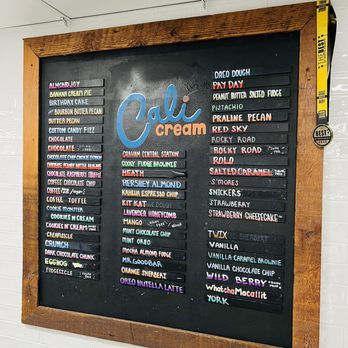 ALMOND JOY
BANANA CREAM PIE
BIRTHDAY CAKE
BOURBON BUTTER PECAN
BUTTER PECAN
COTTON CANDY FIZZ
CHOCOLATE
CHOCOLATE
CHOCOLATE CHIP COOKIE DOUGH
CHOCOLATE PEANUT BUTTER
CHOCOLATE RASPBERRY TRUFFLE
COFFEE CHOCOLATE CHIP
COFFEE
COFFEE TOFFEE
COOKIE MONSTER
COOKIES N CREAM
COOKIES N' CREAM
CREAMSICLE
CRUNCH
DARK CHOCOLATE CHUNK
EGGNOG
FUDGESICLE
Cali
cream
GRAHAM CENTRAL STATION
GOOEY FUDGE BROWNIE
HEATH
HERSHEY ALMOND
KAHLUA ESPRESSO CHIP
KIT KAT
LAVENDER HONEYCOMB
MANGO
MINT CHOCOLATE CHIP
MINT OREO
MOCHA ALMOND FUDGE
MR. GOODBAR
ORANGE SHERBERT
OREO NUTELLA LATTE
OREO DOUGH
PAY DAY
PEANUT BUTTER SALTED FUDGE
PISTACHIO
PRALINE PECAN
RED SKY
ROCKY ROAD
ROCKY ROAD
ROLO
SALTED CARAMEL
S'MORES
SNICKERS
STRAWBERRY
STRAWBERRY CHEESECAKE
TWIX
VANILLA
VANILLA CARAMEL BROWNIE
VANILLA CHOCOLATE CHIP
WILD BERRY
WhatchaMacallit
YORK